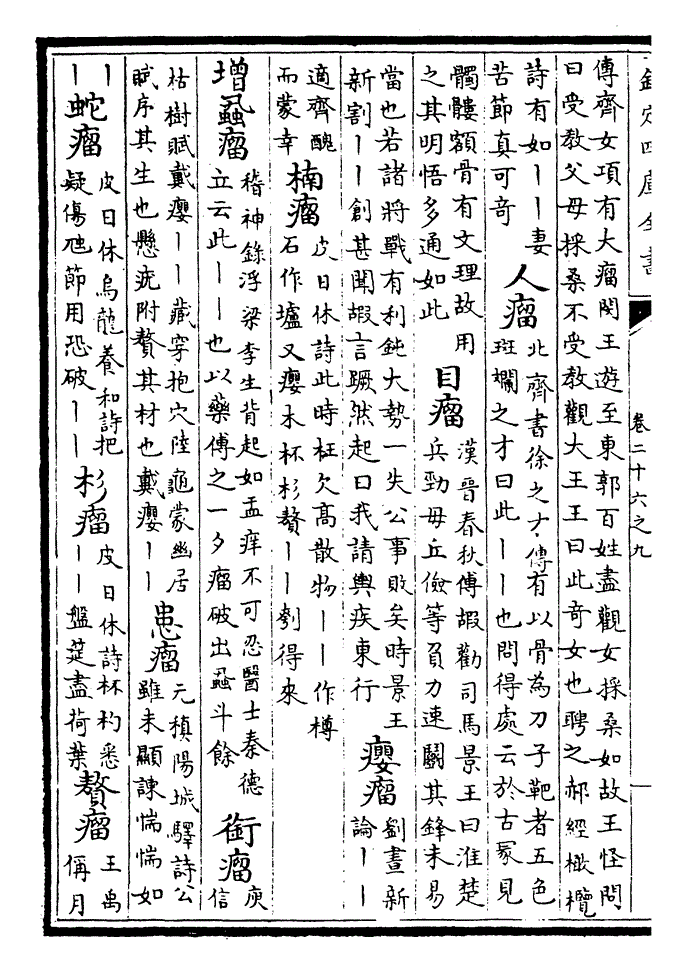 欽定四庫全書
卷二十六之九
傳齊女項有大瘤閔王遊至東郭百姓盡觀女採桑如故王怪問
曰受教父母採桑不受教觀大王王曰此奇女也聘之郝經橄欖
詩有如丨丨妻
苦節真可奇
人瘤
北齊書徐之才傳有以骨為刀子靶者五色
斑斕之才曰此丨丨也問得處云於古冢見
髑髏額骨有文理故用
之其明悟多通如此
目瘤
漢晉春秋傅嘏勸司馬景王曰淮楚
兵勁毋丘儉等負力速鬭其鋒未易
當也若諸將戰有利鈍大勢一失公事敗矣時景王
新割丨丨創甚聞嘏言蹶然起曰我請輿疾東行
癭瘤
劉晝新
論丨丨
適齊醜
而蒙幸
楠瘤
皮日休詩此時枉欠高散物丨丨作樽
石作壚又癭木杯杉贅丨丨刳得來
增蝨瘤
稽神錄浮梁李生背起如盂痒不可忍醫士秦德
立云此丨丨也以藥傅之一夕瘤破出蝨斗餘
銜瘤
庾
信
枯樹賦戴癭丨丨藏穿抱穴陸龜蒙幽居
賦序其生也懸疣附贅其材也戴癭丨丨
患瘤
元稹陽城驛詩公
雖未顯諫惴惴如
丨
丨
蛇瘤
皮日休烏龍養和詩把
疑傷虺節用恐破丨丨
杉瘤
皮日休詩杯杓悉
丨丨盤筵盡荷葉
贅瘤
王禹
偁月